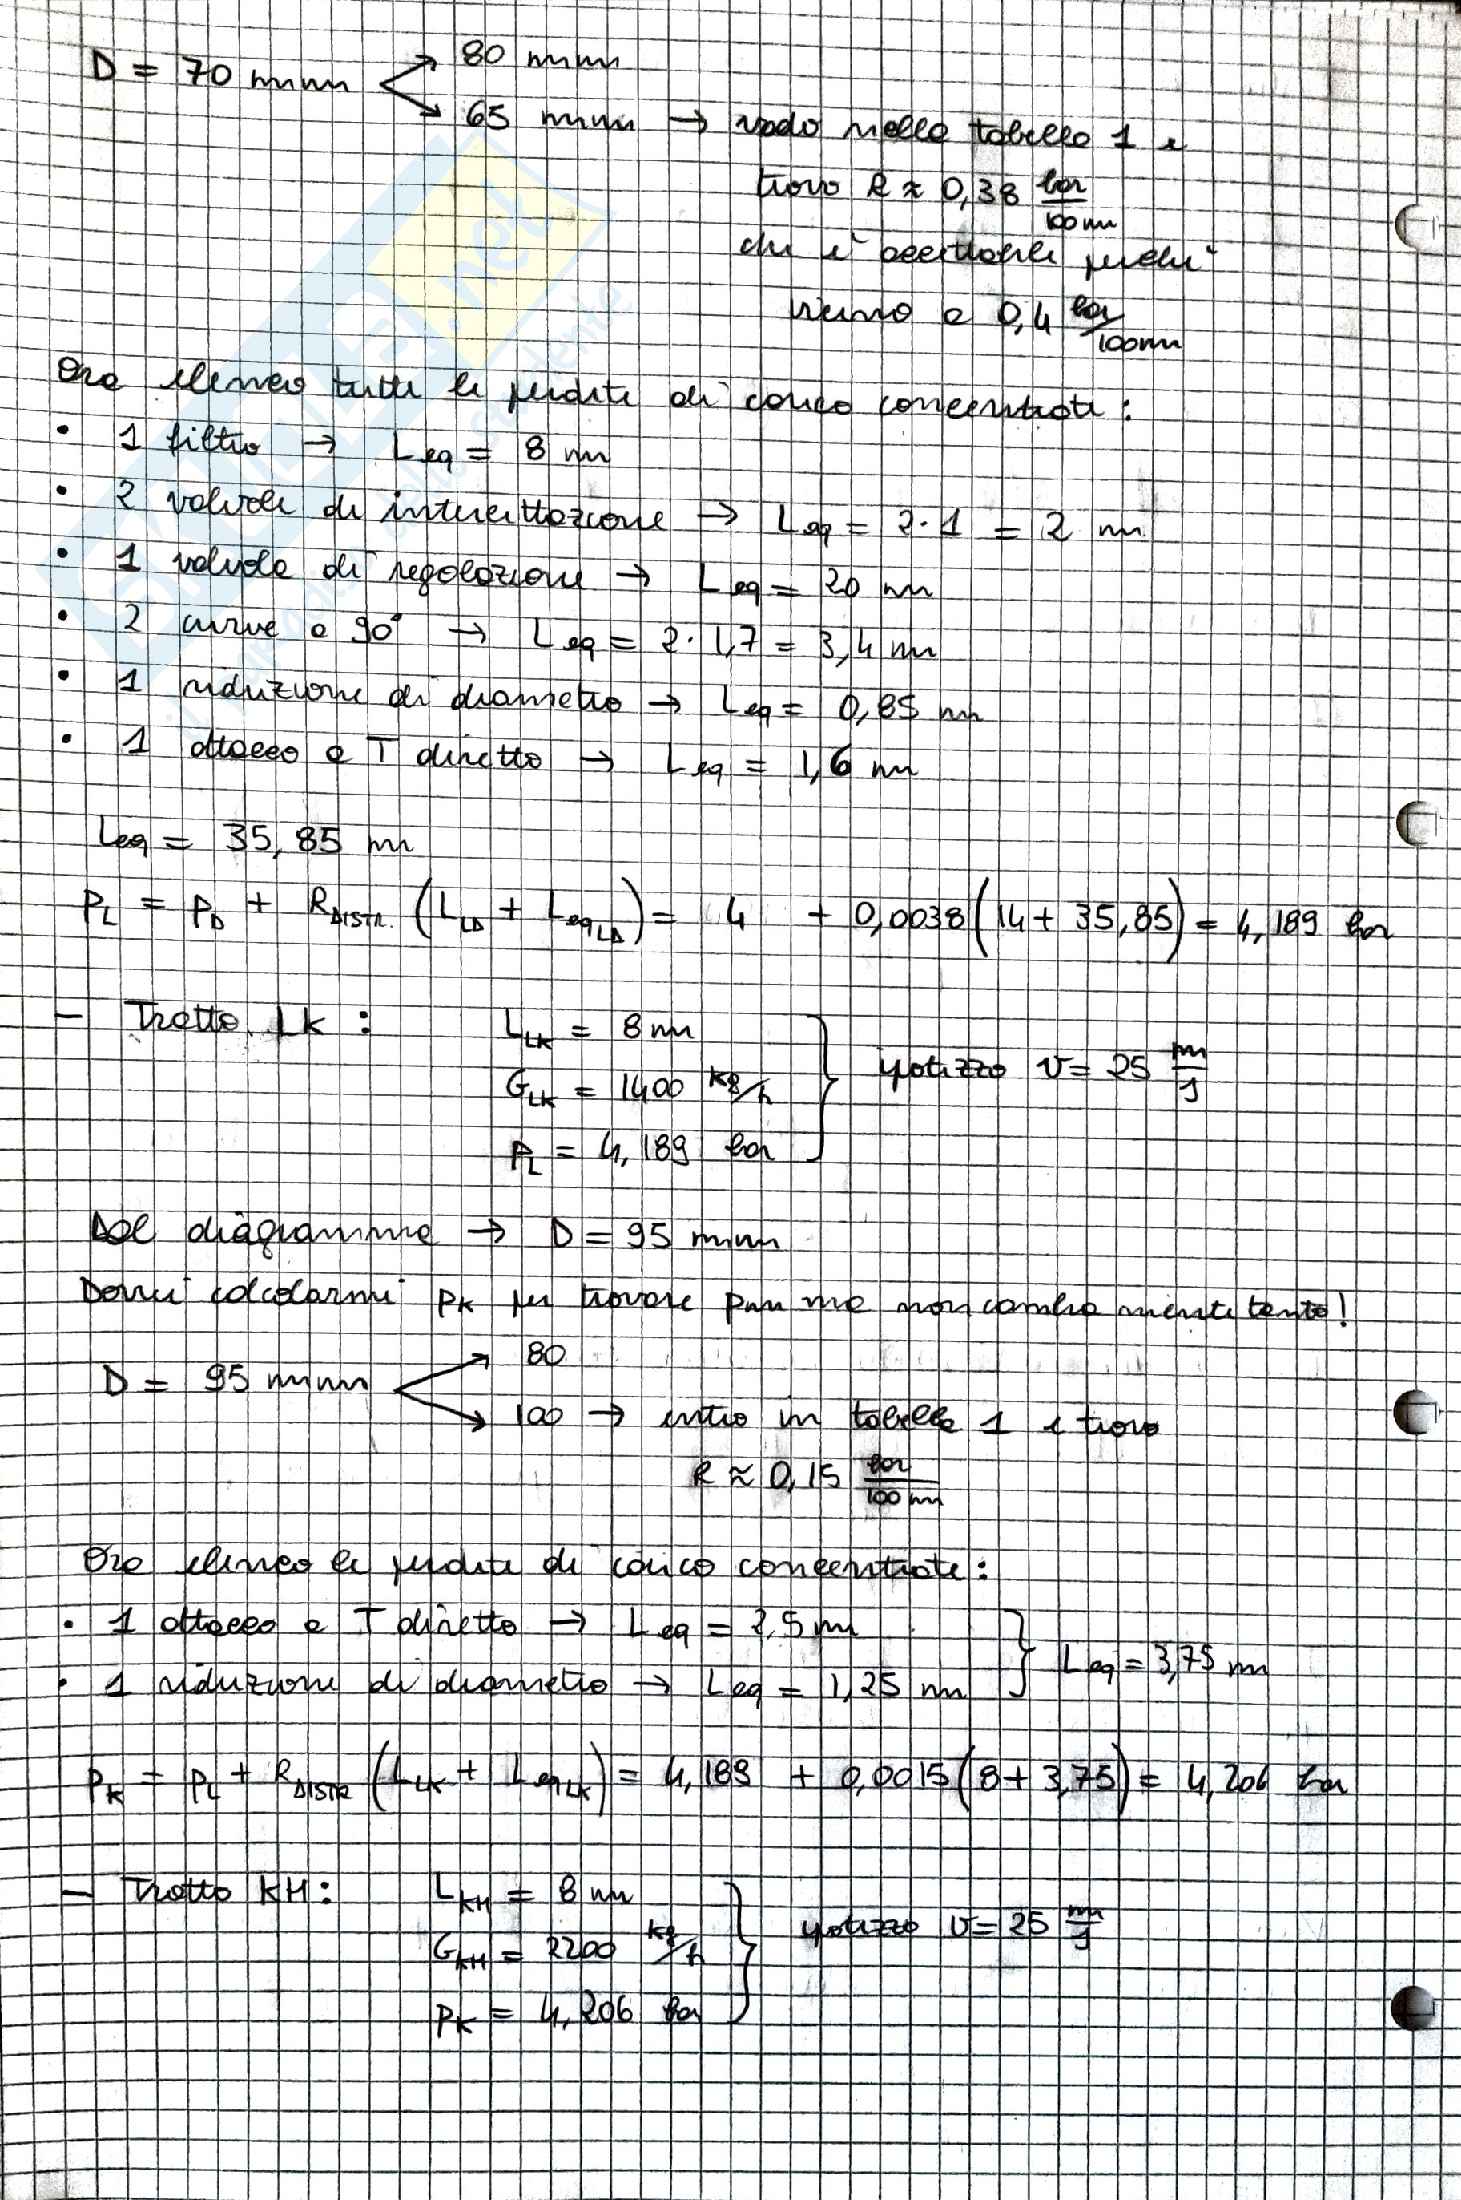 D = 70 mm
80 mm
65 mm → vado nella tabella 1 e
trovo R ≈ 0,38 bar/100 m
che è accettabile perché
vicino a 0,4 bar/100 m
Ora elenco tutte le perdite di carico concentrate:
• 1 filtro → Leq = 8 m
• 2 valvole di intercettazione → Leq = 2·1 = 2 m
• 1 valvola di regolazione → Leq = 20 m
• 2 curve a 90° → Leq = 2·1,7 = 3,4 m
• 1 riduzione di diametro → Leq = 0,85 m
• 1 attacco a T diretto → Leq = 1,6 m
Leq = 35,85 m
PL = PD + RDISTR. (LLD + LeqLD) = 4 + 0,0038 (14 + 35,85) = 4,189 bar
– Tratto LK:
LLK = 8 m
GLK = 1400 kg/h
PL = 4,189 bar
ipotizzo v = 25 m/s
Dal diagramma → D = 95 mm
Dovrei calcolarmi PK per trovare pm ma non cambia niente tanto!
D = 95 mm
80
100 → entro in tabella 1 e trovo
R ≈ 0,15 bar/100 m
Ora elenco le perdite di carico concentrate:
• 1 attacco a T diretto → Leq = 2,5 m
• 1 riduzione di diametro → Leq = 1,25 m
Leq = 3,75 m
PK = PL + RDISTR (LLK + LeqLK) = 4,189 + 0,0015 (8 + 3,75) = 4,206 bar
– Tratto KH:
LKH = 8 m
GKH = 2200 kg/h
PK = 4,206 bar
ipotizzo v = 25 m/s